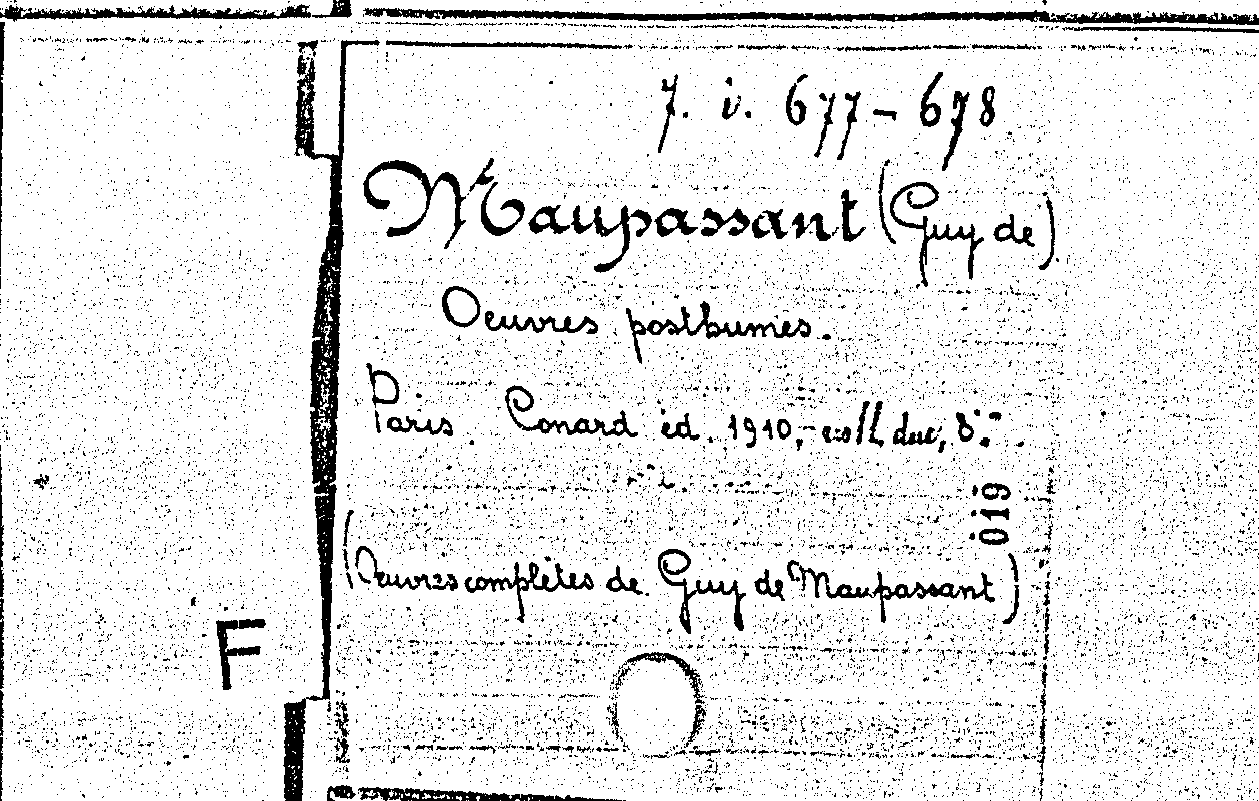 7. i. 677-678
Maupassant (Guy de)
Oeuvres posthumes.
Paris. Conard éd. 1910,
019
(Oeuvres complètes de Guy de Maupassant)
F